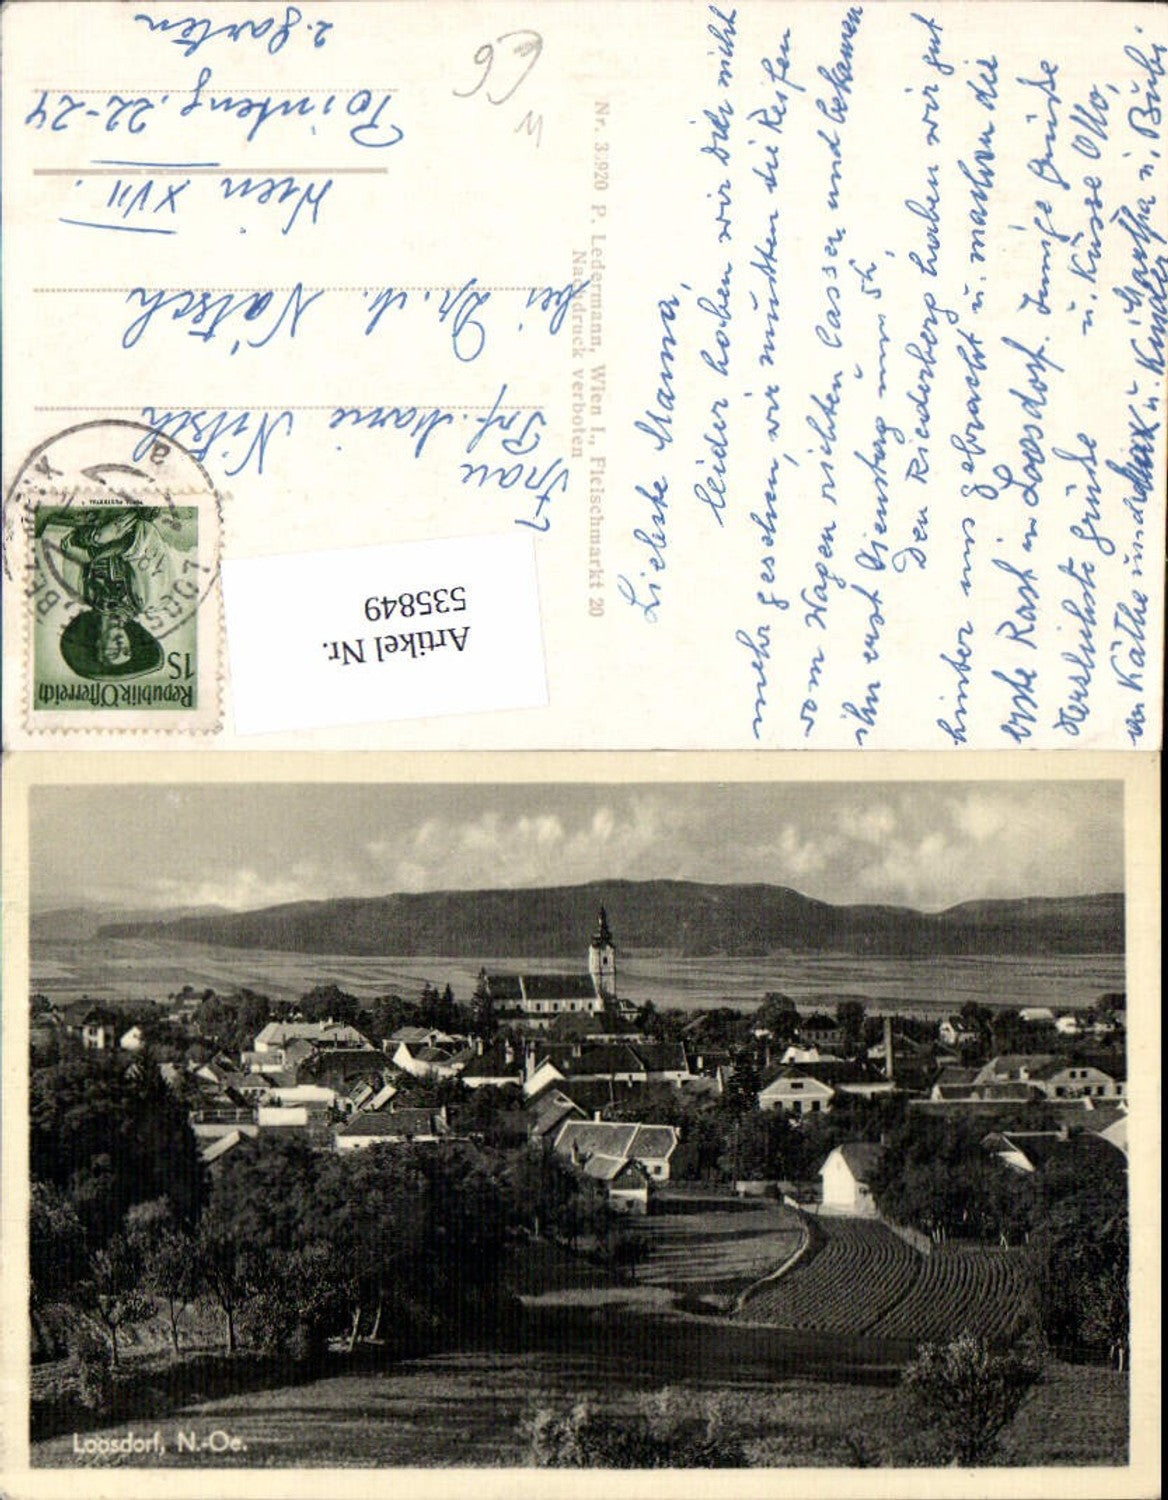 Liebste Mama,
leider haben wir Dich nicht
mehr gesehen, wir mußten die Reifen
vom Wagen richten lassen und bekamen
ihn erst Dienstag um 5h,
Den Riederberg haben wir gut
hinter uns gebracht u. machen die
erste Rast in Loosdorf. Innige Grüße
u. Küsse Otto,
Herzlichste Grüße
von Käthe und Max u.
Martha u. Bubi.
Nr. 3920 P. Ledermann, Wien I., Fleischmarkt 20
Nachdruck verboten
Frau
Marie Nitsch
bei Dr. Natsch
Wien XVII.
22-24
2. Garten
66
W
Republik Österreich
1S
LOOSD
Artikel Nr.
535849
Loosdorf, N.-Oe.